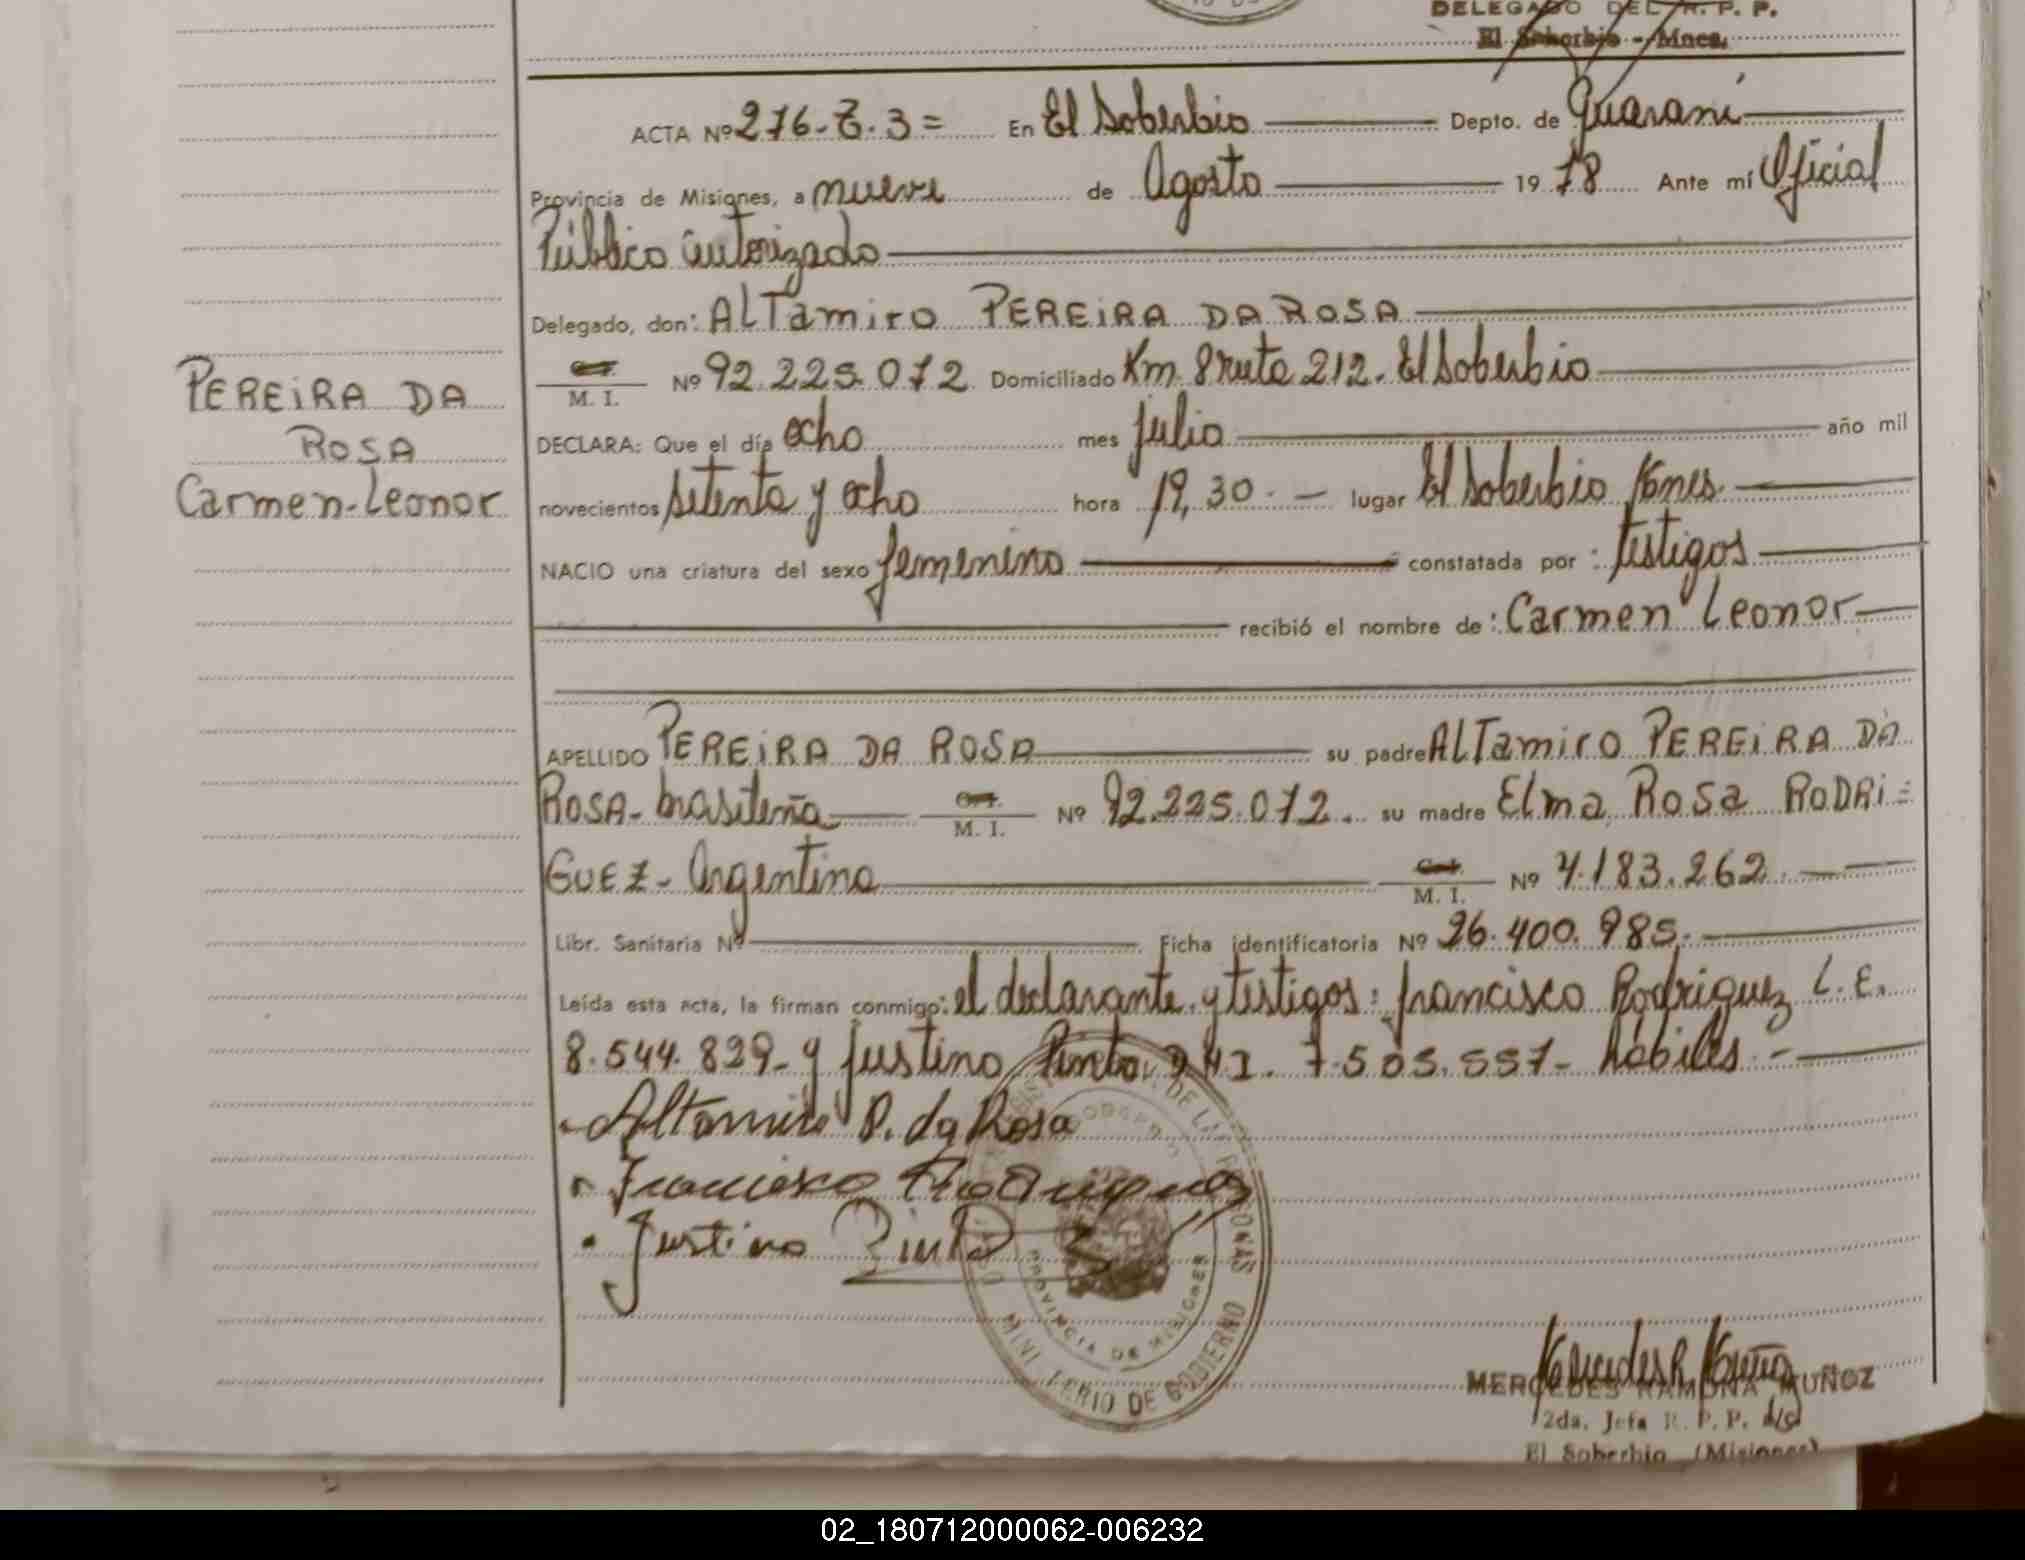 DELEGADO DEL R. P. P.
El Soberbio - Mnes.
ACTA Nº 276-Z.3= En El Soberbio Depto. de Guaraní
Provincia de Misiones, a nueve de Agosto 1978 Ante mí Oficial
Público autorizado
Delegado, don: ALTamiro PEREIRA DA ROSA
M. I. Nº 92.225.072 Domiciliado Km. 8 ruta 212. El Soberbio
PEREIRA DA
DECLARA: Que el día ocho mes julio año mil
ROSA
novecientos setenta y ocho hora 19,30.- lugar El Soberbio Mnes.
Carmen-Leonor
NACIO una criatura del sexo femenino constatada por: testigos
recibió el nombre de: Carmen Leonor
APELLIDO PEREIRA DA ROSA su padre ALTamiro PEREIRA DA
ROSA- brasileña M. I. Nº 92.225.072. su madre Elma Rosa RODRI=
GUEZ- Argentina M. I. Nº 4.183.262.
Libr. Sanitaria Nº Ficha identificatoria Nº 26.400.985.-
Leída esta acta, la firman conmigo: el declarante y testigos: francisco Rodriguez L.E.
8.544.829- y justino Pinto. D N I. 7.505.557- hábiles.-
Altamiro P. da Rosa
Francisco Rodriguez
Justino Pinto
DE LAS PERSONAS
PROVINCIA DE MISIONES
MINISTERIO DE GOBIERNO
Mercedes R Muñoz
MERCEDES RAMONA MUÑOZ
2da. Jefa R. P. P.
El Soberbio (Misiones)
02_180712000062-006232